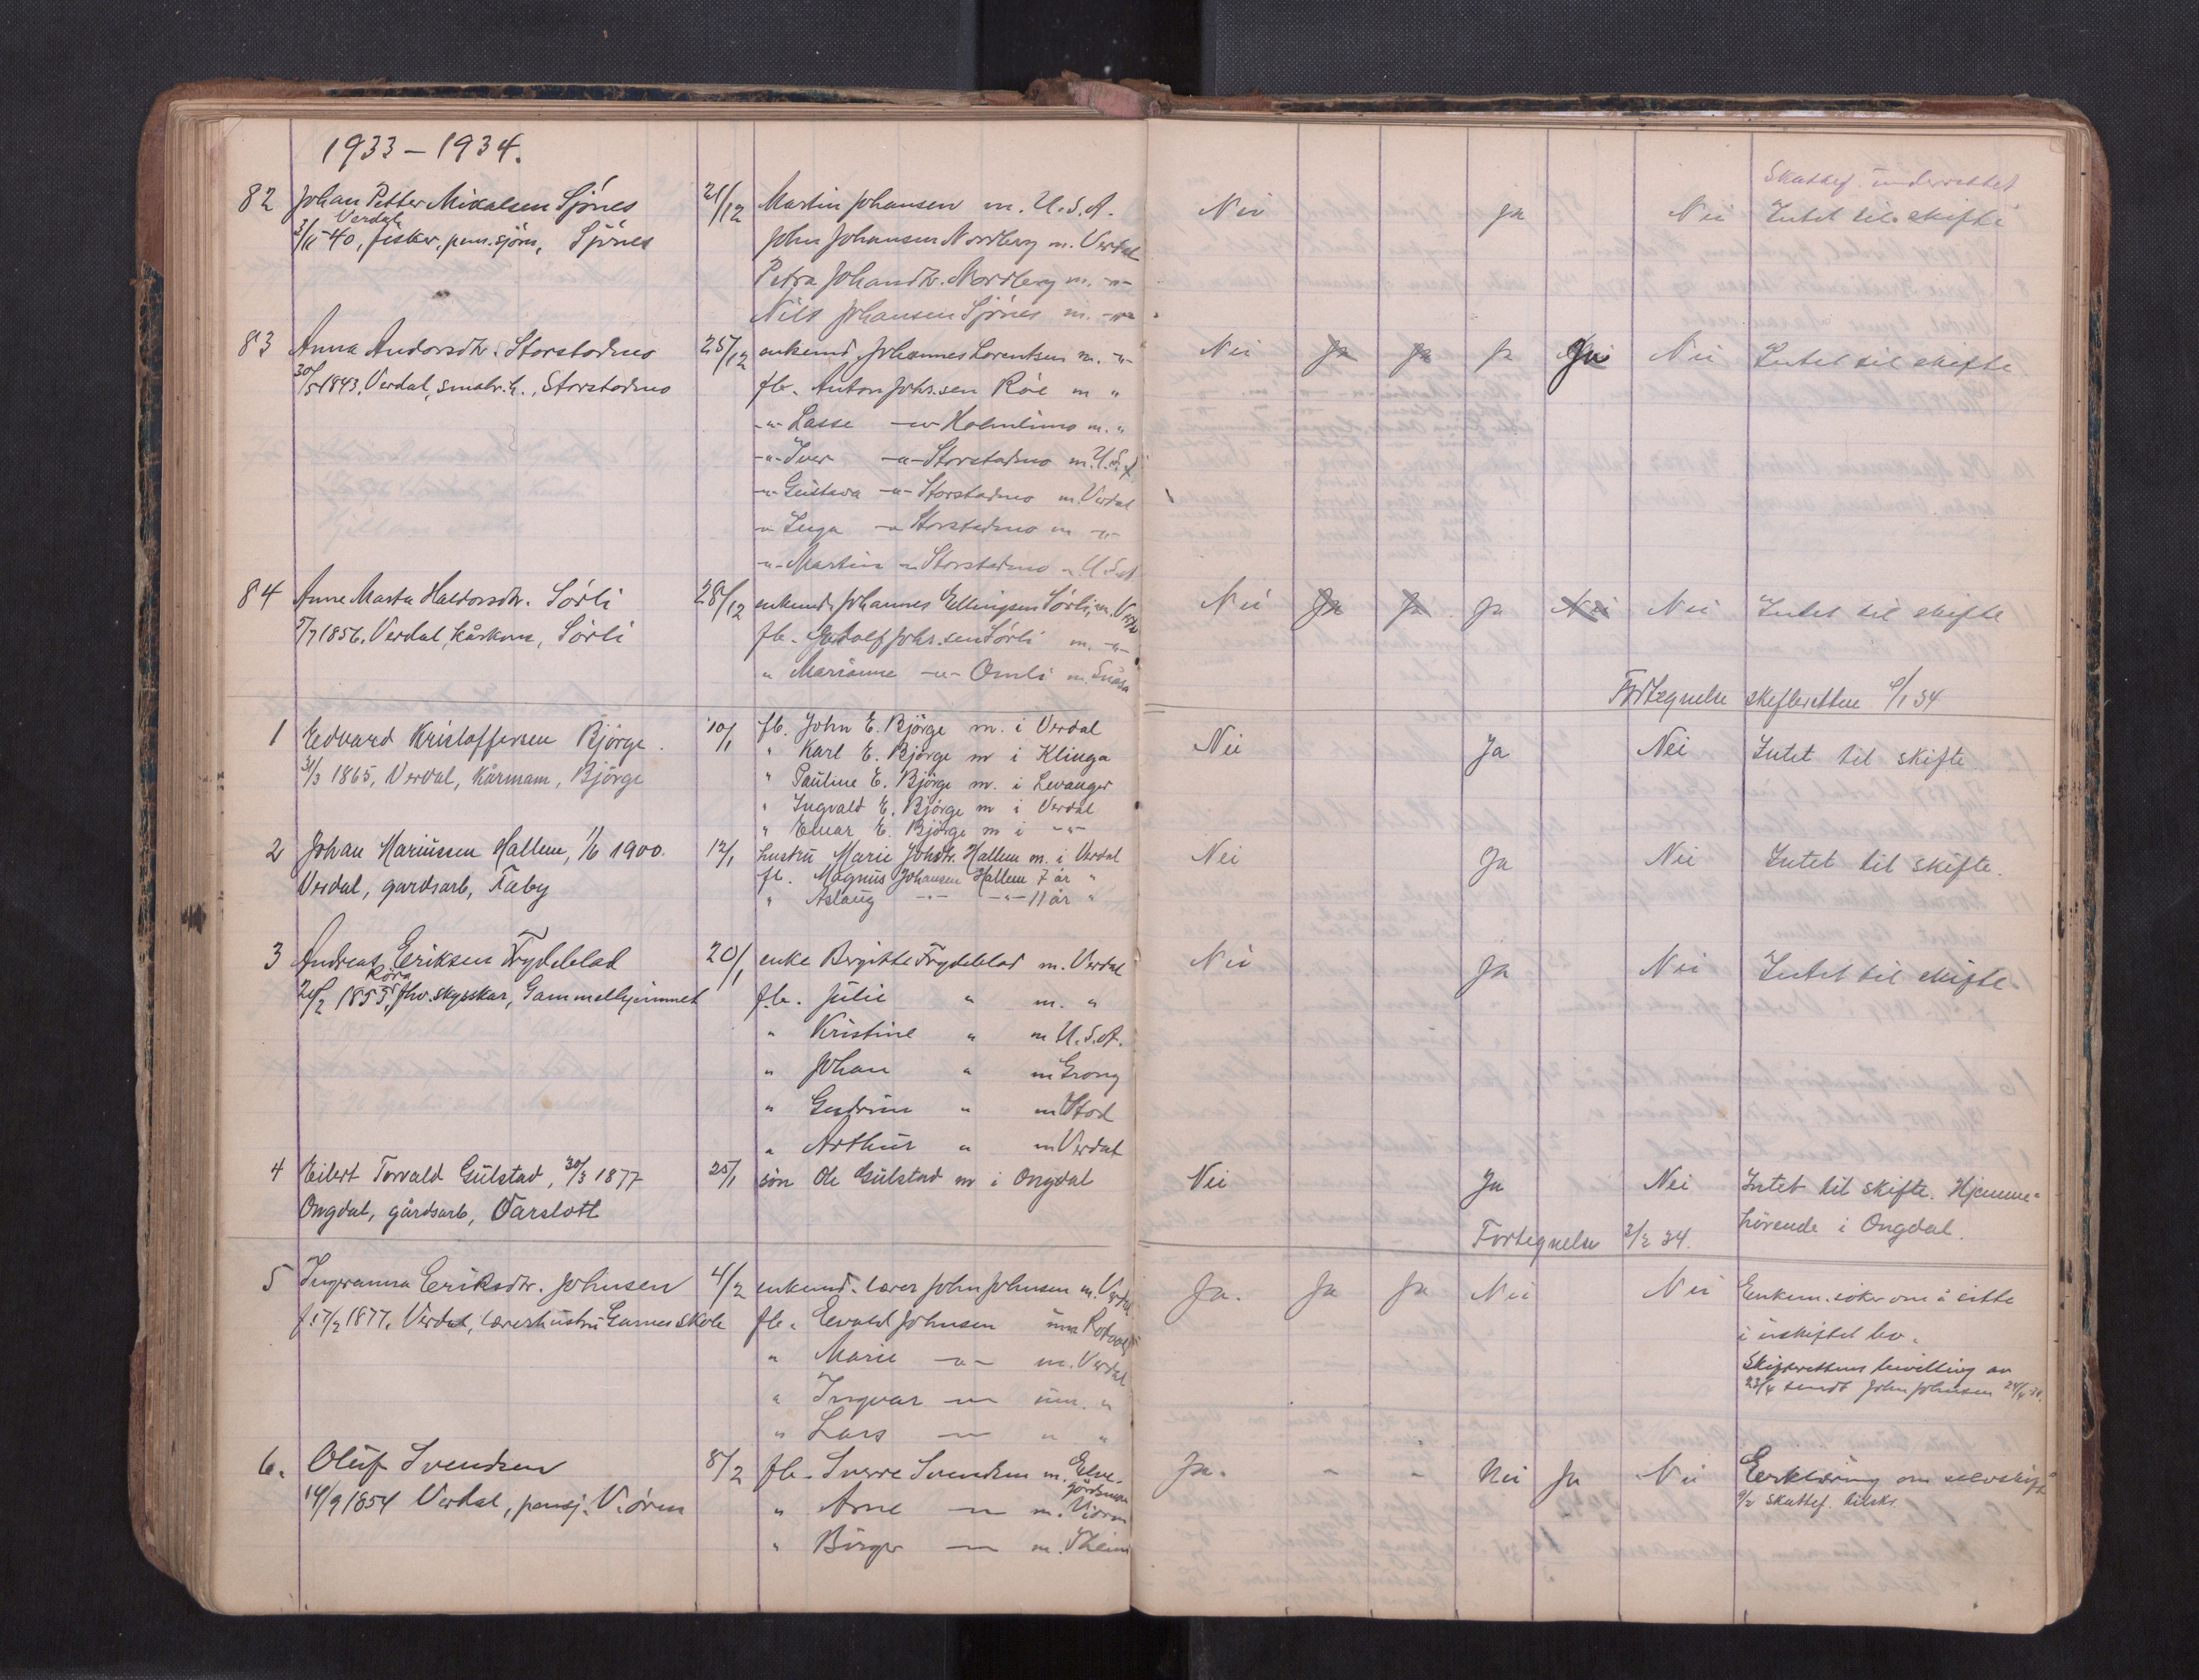 1933 – 1934.
Skattef. underrettet
82 Johan Petter Mikalsen Sjønes 21/12 Martin Johansen m. U.S.A. Nei Ja Nei Intet til skifte
Verdal
3/11 - 40, fisker, pens. sjøm., Sjønes John Johansen Nordberg m. Verdal
Petra Johansdtr. Nordberg m. -"-
Nils Johansen Sjønes m. -"-
83 Anna Andorsdtr. Storstadmo 25/12 enkemd. Johannes Lorentsen m. -"- Nei Ja Ja Ja Nei Intet til skifte
30/5 1843, Verdal, småbr.h., Storstadmo fb. Anton Johs.sen Röe m "
-"- Lasse -"- Holmlimo m. "
-"- Iver -"- Storstadmo m. U.S.A
-"- Gustava -"- Storstadmo m. Verdal
-"- Inga -"- Storstadmo m -"-
-"- Martin -"- Storstadmo - U.S.A
84 Anne Marta Haldorsdtr. Sörli 28/12 enkemd. Johannes Ellingsen Sörli, m. Verdal Nei Ja Ja Ja Nei Nei Intet til skifte
/7 1856, Verdal, kårkone, Sörli fb. Johs.sen Sörli m. -"-
" Marianne -"- Omli m. Snåsa
Fortegnelse skifteretten /1 34
1 Edvard Kristoffersen Björge. 10/1 fb. John E. Björge m. i Verdal Nei Ja Nei Intet til skifte
31/3 1865, Verdal, Kårmann, Björge " Karl E. Björge m i Klinga
" Pauline E. Björge m. i Levanger
" Ingvald E. Björge m i Verdal
" Einar E. Björge m i -"-
2 Johan Mariussen Hallem, 1/6 1900. 12/1 hustru Marie Johsdtr. Hallem m. i Verdal Nei Ja Nei Intet til skifte.
Verdal, gardsarb, Faby fb. Magnus Johansen Hallem 7 år "
" Aslaug -"- -"- 11 år "
3 Andreas Eriksen Frydeblad 20/1 enke Bergitte Frydeblad m. Verdal Nei Ja Nei Intet til skifte
Röra
24/2 1855, fhv. skysskar, Gammelhjemmet fb. Julie " m. "
" Kristine " m U.S.A.
" Johan " m Grong
" Gudrun " m Stod
" Arthur " m Verdal
4 Eilert Torvald Gulstad, 30/3 1877 25/1 sön Ole Gulstad m i Ongdal Nei Ja Nei Intet til skifte. Hjemme-
Ongdal, gårdsarb, Varslott hörende i Ongdal.
Fortegnelse 3/2 34.
5 Ingeranna Eriksdtr. Johnsen 4/2 enkemd. lærer John Johnsen m. Verdal Ja. Ja Ja Nei Nei Enkem. söker om å sitte
f. 17/2 1877, Verdal, lærerhustru Garnes skole fb. Edvald Johnsen um i uskiftet bo.
" Marie -"- m. Verdal Skifterettens bevilling av
" Ingvar -"- um. " 23/4 sendt John Johnsen 24/4 34.
" Lars -"- " "
6. Oluf Svendsen 8/2 fb. Sverre Svendsen m. Ja. - - Nei Ja Nei Erklæring om selvskifte
14/9 1854 Verdal, pensj. V.ören " Arne -"- m. V.ören 9/2 skattef. tilskr.
" Birger -"- m. Theim